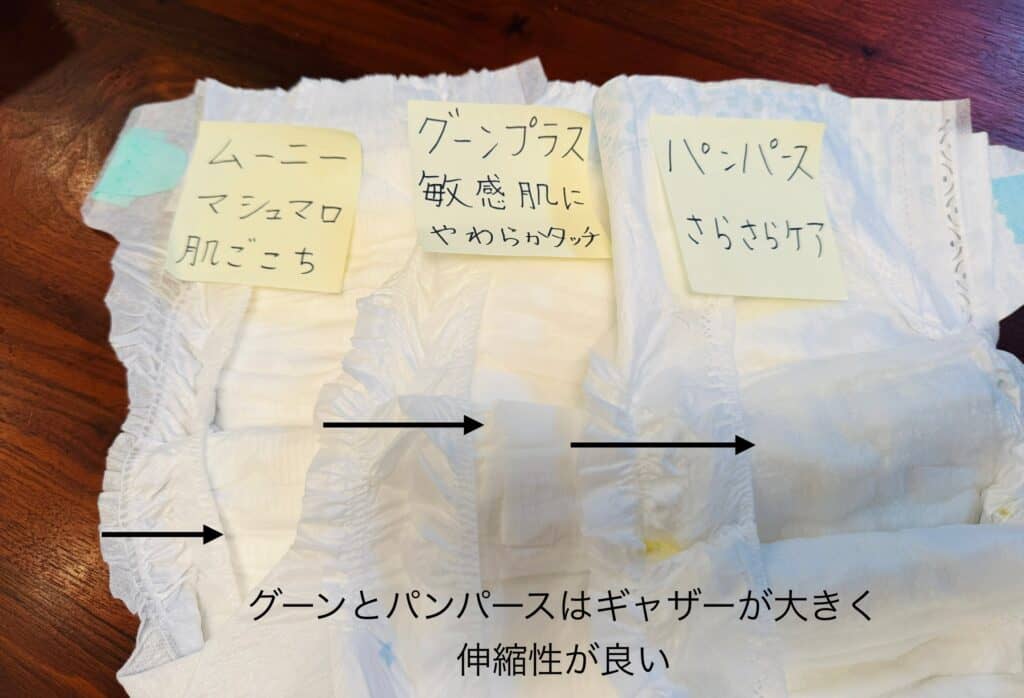 ムーニー
マシュマロ
肌ごこち
グーンプラス
敏感肌に
やわらかタッチ
パンパース
さらさらケア
グーンとパンパースはギャザーが大きく
伸縮性が良い